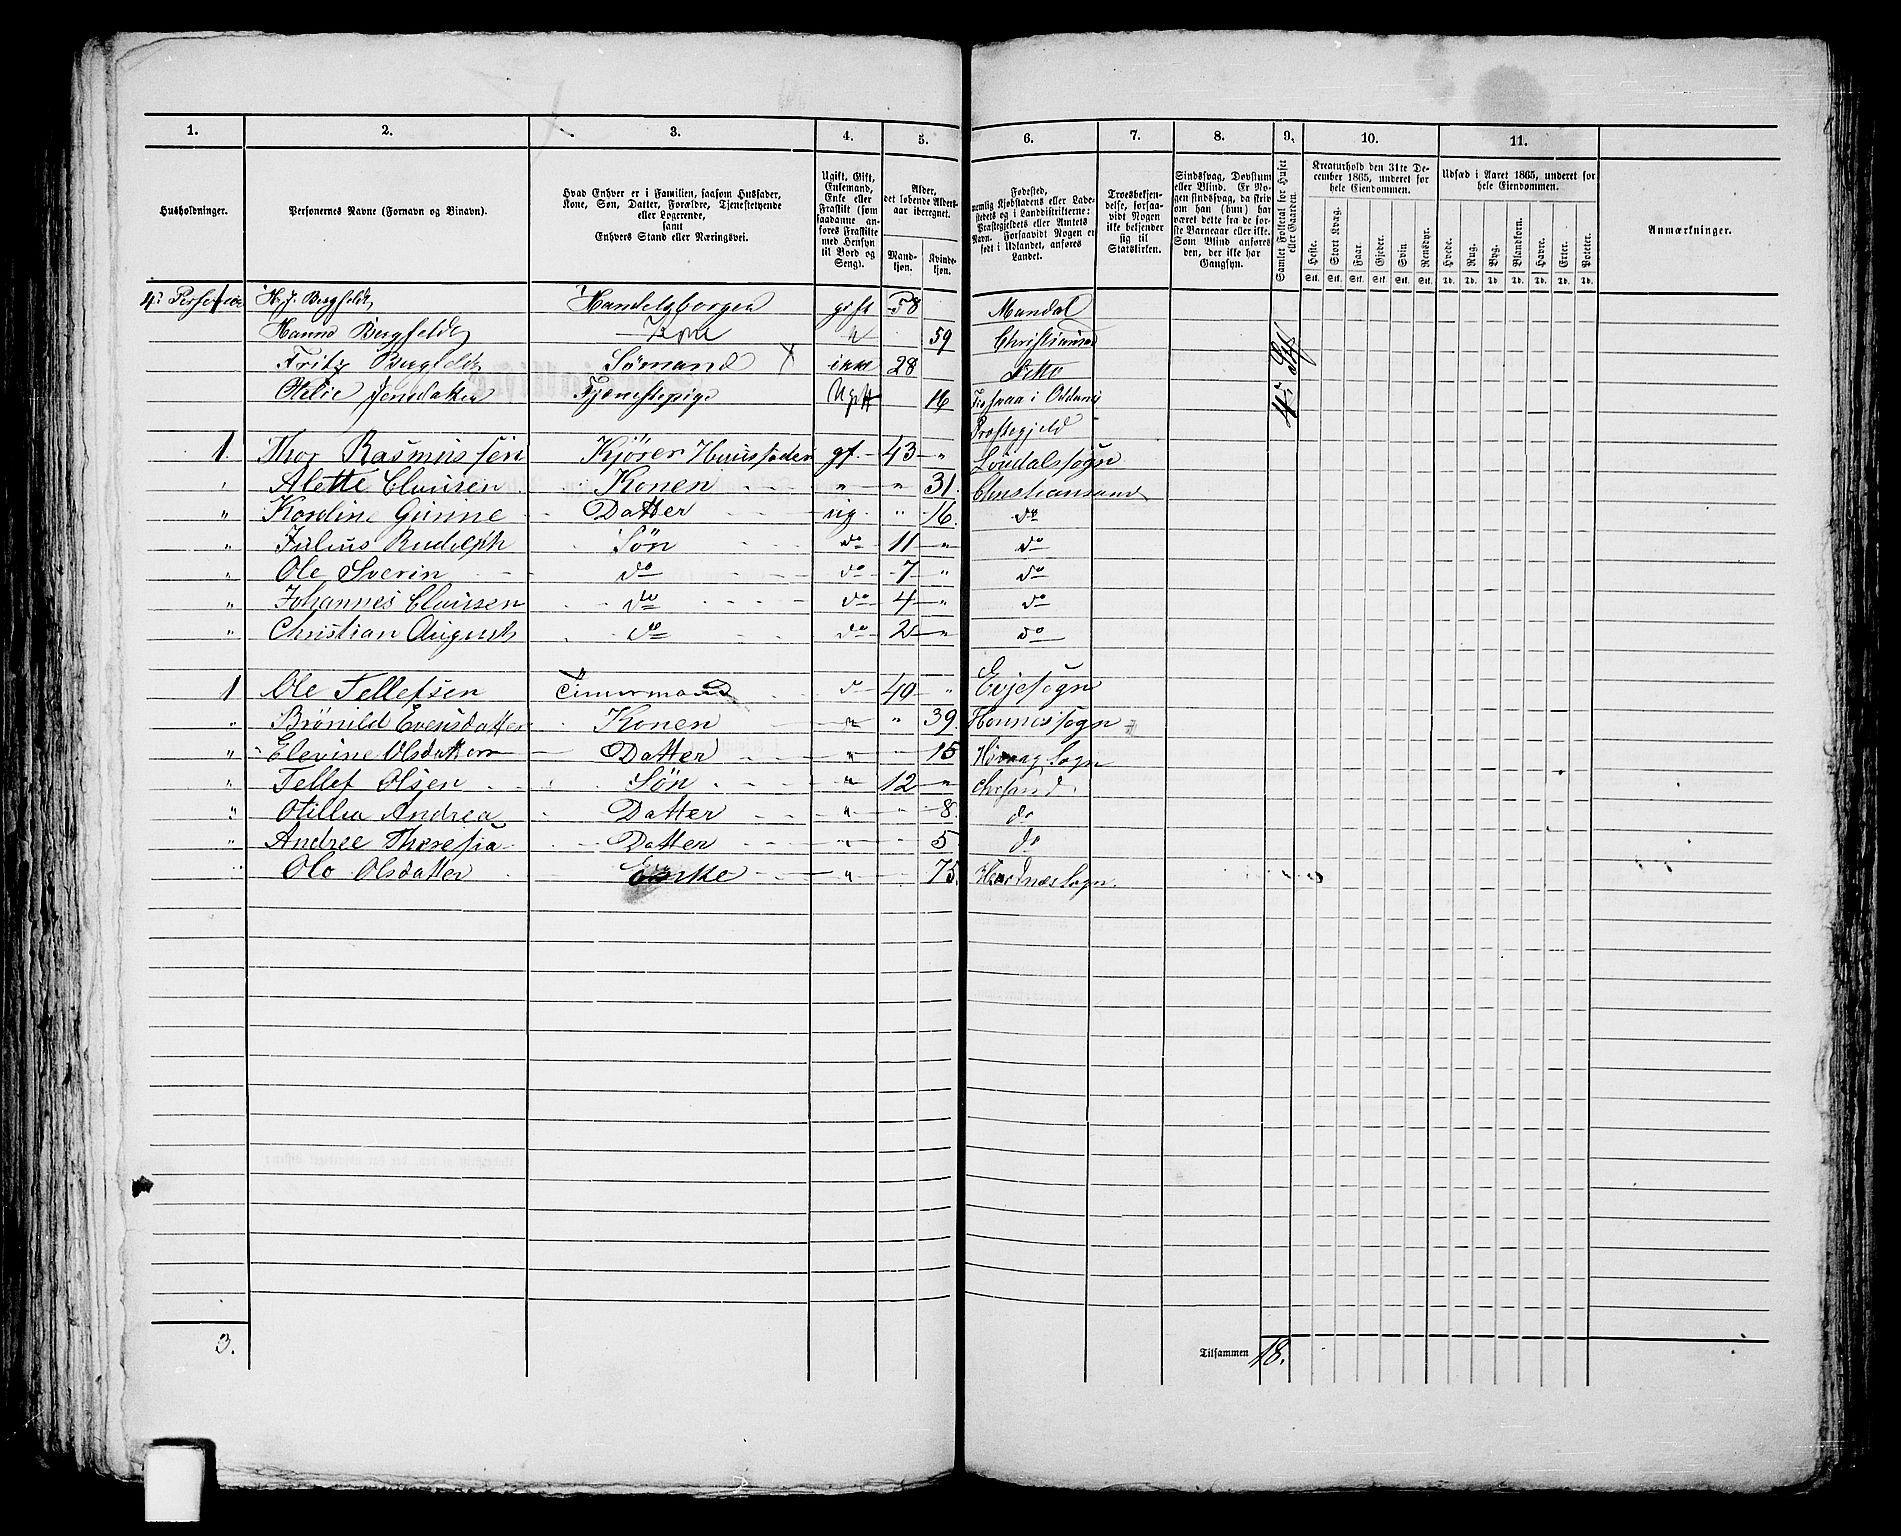 1. 2. 3. 4. 5. 6. 7. 8. 9. 10. 11.
Husholdninger.
Personernes Navne (Fornavn og Binavn).
Hvad Enhver er i Familien, saasom Husfader,
Kone, Søn, Datter, Forældre, Tjenestetyende
eller Logerende,
samt
Enhvers Stand eller Næringsvei.
Ugift, Gift,
Enkemand,
Enke eller
Fraskilt (som
saadanne an-
føres Fraskilte
med Hensyn
til Bord og
Seng).
Alder,
det løbende Alders-
aar iberegnet.
Mand-
kjøn.
Kvinde-
kjøn.
Fødested,
nemlig Kjøbstadens eller Lade-
stedets og i Landdistrikterne:
Præstegjeldets eller Amtets
Navn. Forsaavidt Nogen er
født i Udlandet, anføres
Landet.
Troesbekjen-
delse, forsaa-
vidt Nogen
ikke bekjender
sig til
Statskirken.
Sindssvag, Døvstum
eller Blind. Er No-
gen sindssvag, da skriv
om han (hun) har
været dette fra de før-
ste Barneaar eller ikke.
Som Blind anføres
den, der ikke har
Gangsyn.
Samlet Folketal for Huset
eller Gaarden.
Kreaturhold den 31te De-
cember 1865, underet for
hele Eiendommen.
Heste. Stort Kvæg. Faar. Gjeder. Svin Rensdyr.
Stk. Stk. Stk. Stk. Stk. Stk.
Udsæd i Aaret 1865, underet for
hele Eiendommen.
Hvede. Rug. Byg. Blandkorn. Havre. Erter. Poteter.
Td. Td. Td. Td. Td. Td. Td.
Anmærkninger.
Bergfeldt, Handelsborger gift 58 Mandal
Hanna Bergfeldt Kone 59 Christiansand
Fritz Sømand X ikke 28 Ditto
Otelie Jensdatter Tjenestepige Ugift 16 i Oddernes
Præstegjeld
1. Thor Rasmussen Kjører Huusfader gf. 43 " Sogn
" Alette Clausen Konen " " 31. Christiansand
" Gunne Datter ug. " 16. do
" Julius Rudolph Søn do 11 " do
" Ole Sverin do do 7 " do
" Johannes Clausen do do 4 " do
" Christian August do do 2 " do
1 Ole Tellefsen Timermand 40 " Evje Sogn
" Evensdatter Konen " " 39. Sogn
" Elevine Olsdatter Datter " 15 Sogn
" Tellef Olsen Søn " 12 " Chrsand
" Otillia Andrea Datter " 8. do
" Andree Theresia Datter " 5 do
" Olsdatter Enke " 75. Sogn.
3.
Tilsammen 18.